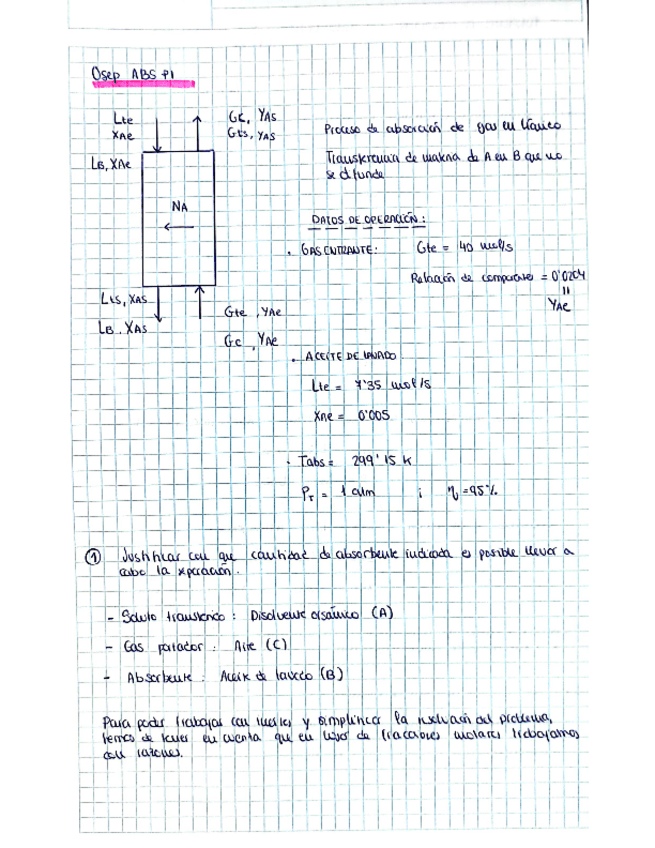 Osep ABS P1
Lte
XAe
GC, YAS
Gts, YAS
LB, XAe
NA
Lts, XAS
LB, XAS
Gte, YAe
GC, YAe
Proceso de absorción de gas en líquido
Transferencia de materia de A en B que no
se difunde
DATOS DE OPERACIÓN:
. GAS ENTRANTE: Gte = 40 mol/s
Relación de = 0'0204
YAe
. ACEITE DE LAVADO
Lte = 7'35 mol/s
XAe = 0'005
. Tabs = 299'15 K
PT = 1 atm ; η = 95%
① Justificar con que cantidad de absorbente indicada es posible llevar a
cabo la operación.
- Soluto transferido: Disolvente orgánico (A)
- Gas portador: Aire (C)
- Absorbente: Aceite de lavado (B)
Para poder trabajar con y simplificar la resolución del problema,
hemos de tener en cuenta que en lugar de fracciones molares trabajamos
con razones.